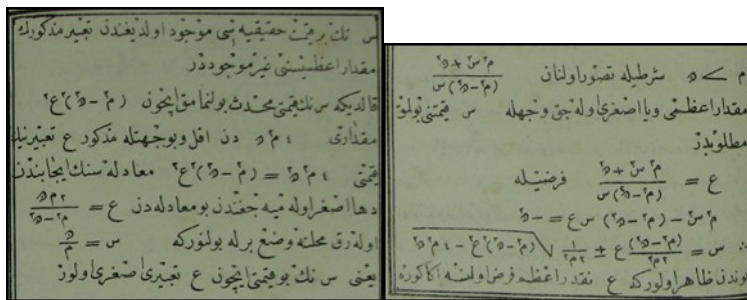 م > ه شرطیله تصور اولنان (م٢ س٢ + ه٢) / (م٢ - ه٢) س
مقدار اعظمی ویا اصغری اوله جق وجهله س قیمتنی بولمق
مطلوبدر
ع = (م٢ س٢ + ه٢) / (م٢ - ه٢) س فرضیله
م٢ س٢ - (م٢ - ه٢) س ع = - ه٢
∴ س = (م٢ - ه٢) ع / ٢م٢ ± ١ / ٢م٢ √(م٢ - ه٢)٢ ع٢ - ٤م٢ ه٢
بوندن ظاهر اولورکه ع نقدر اعظم فرض اولنسه اکا کوره
س نك بر قیمت حقیقیه سی موجود اولدیغندن تعبیر مذکورك
مقدار اعظمیسی غیر موجوددر
قالدیکه س نك قیمتی محدث بولنمامق ایچون (م٢ - ه٢)٢ ع٢
مقداری ٤م٢ ه٢ دن اقل وبوجهتله مذکور ع تعبیرینك
قیمتی ٤م٢ ه٢ = (م٢ - ه٢)٢ ع٢ معادله سنك ایجابندن
دها اصغر اوله میه جغندن بو معادله دن ع = ٢م ه / م٢ - ه٢
اوله رق محلنه وضع برله بولنورکه س = ه / م
یعنی س نك بو قیمتی ایچون ع تعبیری اصغری اولور